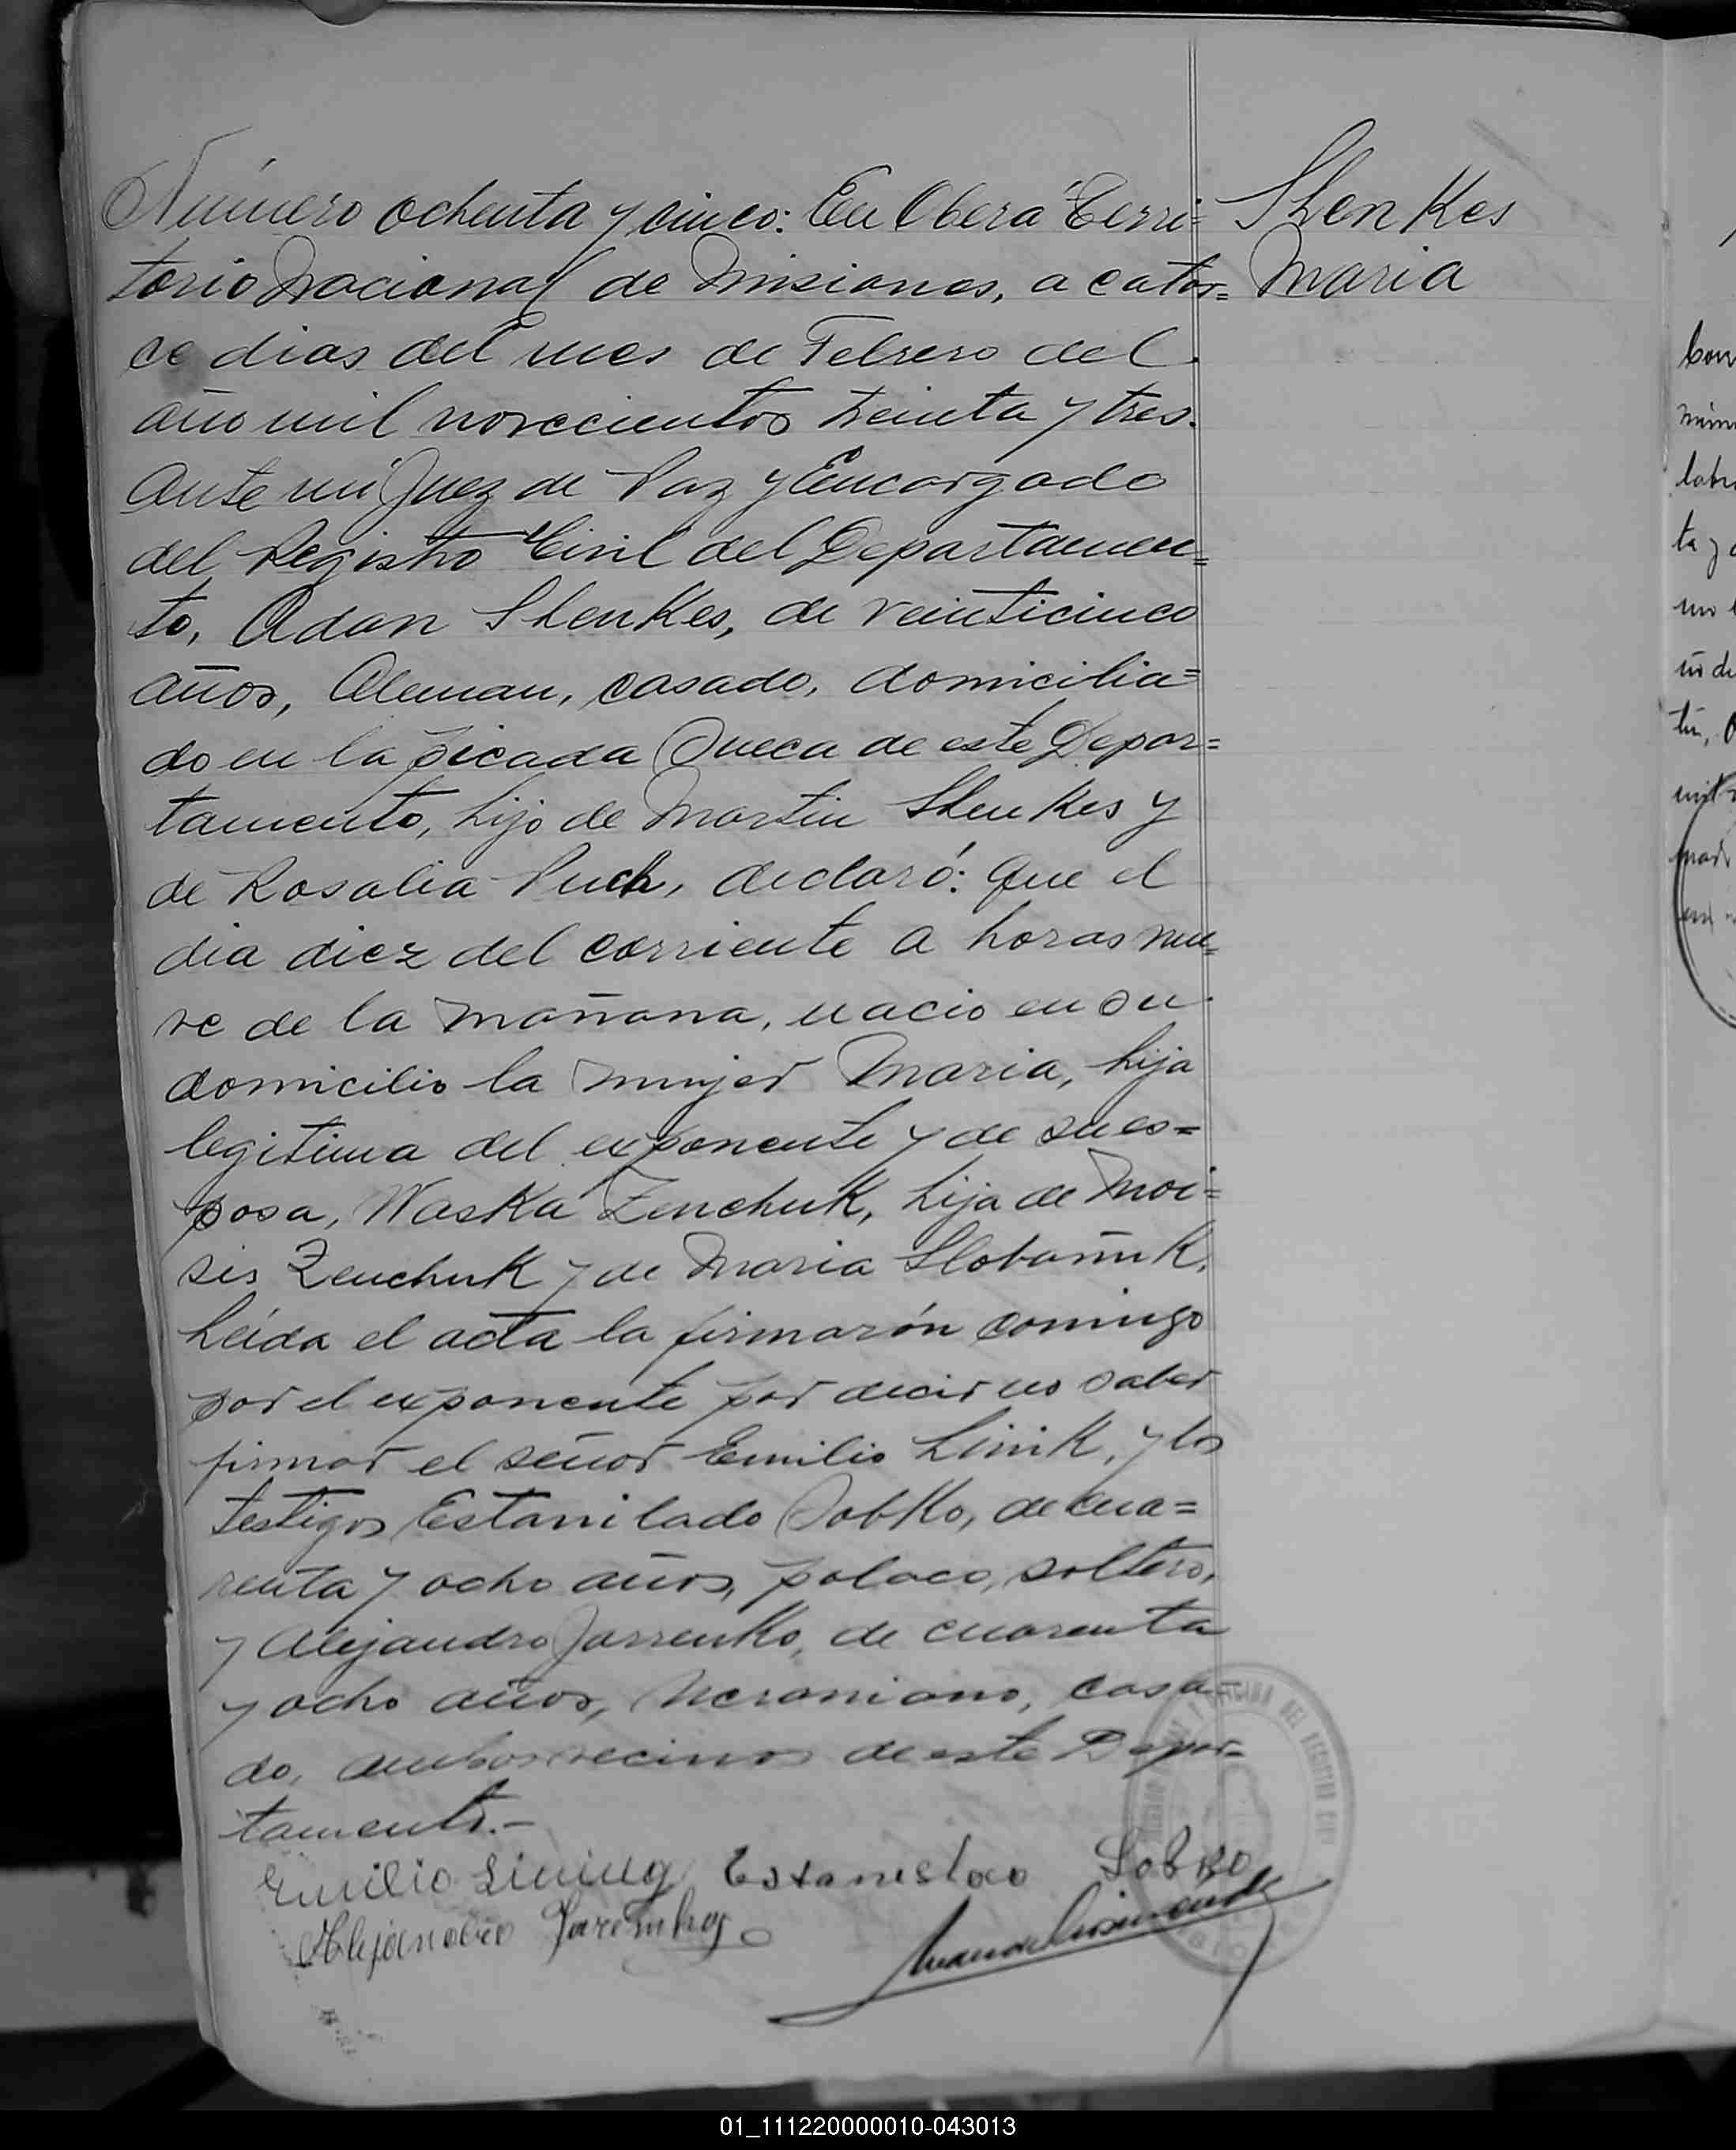 Número ochenta y cinco: En Oberá Terri=
torio Nacional de Misiones, a cator=
ce dias del mes de Febrero del
año mil novecientos treinta y tres.
Ante mi Juez de Paz y Encargado
del Registro Civil del Departamen=
to, Adan Shenkes, de veinticinco
años, Aleman, casado, domicilia=
do en la picada Sueca de este Depar=
tamento, hijo de Martin Shenkes y
de Rosalia Puch, declaró: Que el
dia diez del corriente a horas nue=
ve de la mañana, nacio en su
domicilio la mujer Maria, hija
legitima del exponente y de su es=
posa, Waska Zenchuk, hija de Moi=
ses Zenchuk y de Maria
Leida el acta la firmarón comigo
por el exponente por decir no saber
firmar el señor Emilio Linik, y los
testigos Estanilado Sobko, de cua=
renta y ocho años, polaco, soltero,
y Alejandro Jarrenko, de cuarenta
y ocho años, Ucraniano, casa=
do, ambos vecinos de este Depar=
tamento.-
Shenkes
Maria
Emilio Estanislao Sobko
01_111220000010-043013